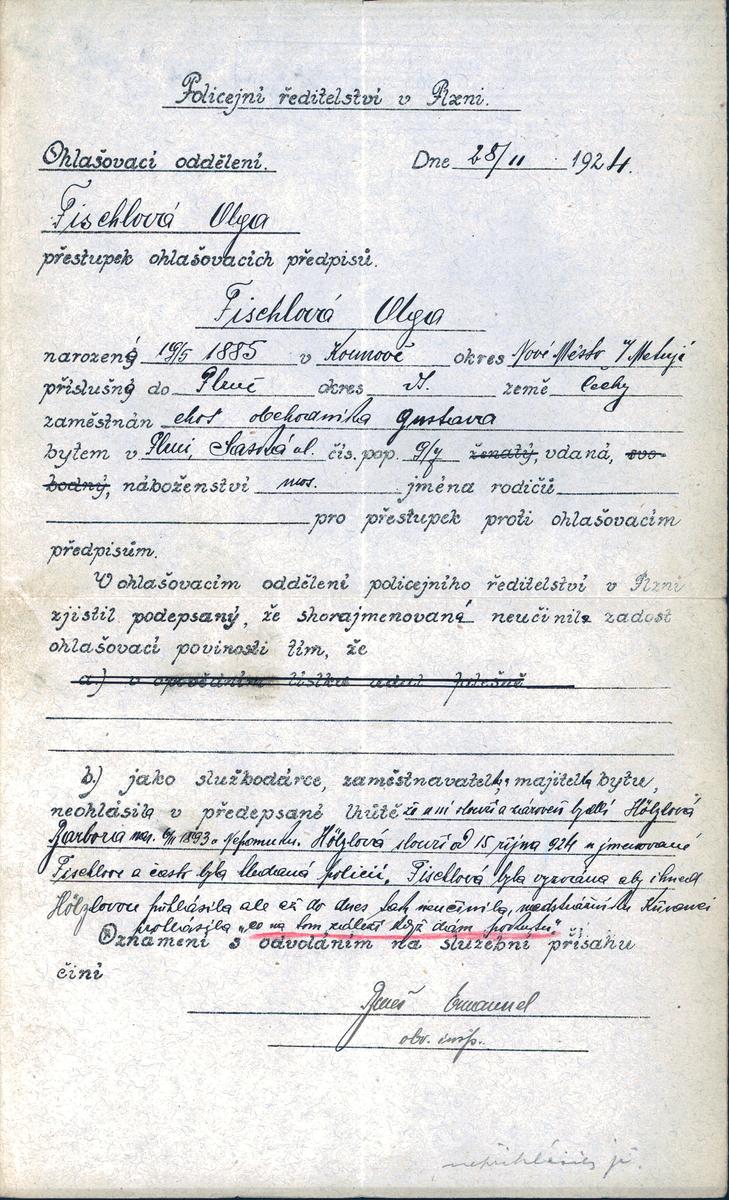 Policejní ředitelství v Plzni.
Ohlašovací oddělení. Dne 28/11 1924.
Fischlová Olga
přestupek ohlašovacích předpisů.
Fischlová Olga
narozená 19/5 1885 v Kounově okres Nové Město n/Metují
příslušná do Plzně okres land země Čechy
zaměstnán choť obchodníka Gustava
bytem v Plzni, Saská ul. čís. pop. 9/7 ženatý, vdaná, svo-
bodný, náboženství mos. jména rodičů
pro přestupek proti ohlašovacím
předpisům.
V ohlašovacím oddělení policejního ředitelství v Plzni
zjistil podepsaný, že shorajmenovaná neučinila zadost
ohlašovací povinosti tím, že
a) v opovědním lístku udal falešně
b.) jako služбodárce, zaměstnavatelka, majitelka bytu,
neohlásila v předepsané lhůtě že u ní slouží a zároveň bydlí Hölzlová
Barbora nar. 1893 v Nepomuku. Hölzlová slouží od 15 října 924 u jmenované
Fischlové a často byla hledaná policií. Fischlová byla vyzvána aby ihned
Hölzlovou přihlásila ale až do dnes tak neučinila, nadstrážníku
prohlásila "co na tom záleží když dám pokutu"
Oznámení s odvoláním na služební přísahu
činí
Beneš Emanuel
obv. insp.